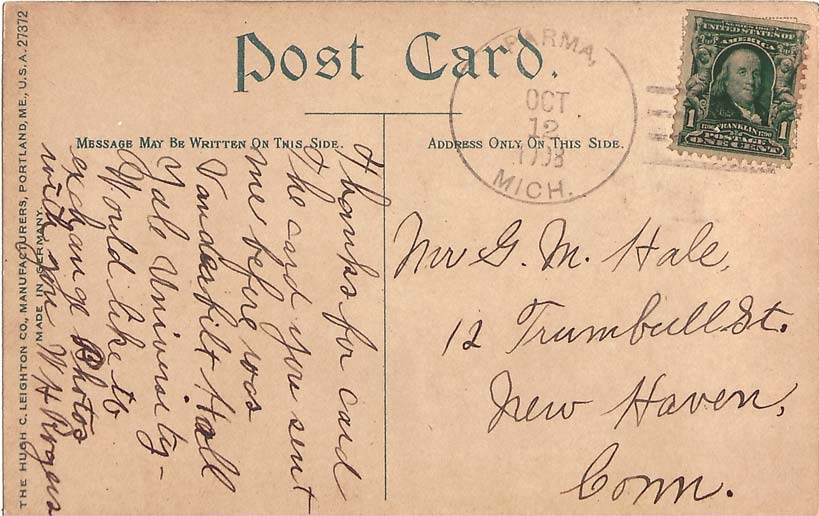 Post Card.
MESSAGE MAY BE WRITTEN ON THIS SIDE.
ADDRESS ONLY ON THIS SIDE.
PARMA,
OCT
12
1908
MICH.
UNITED STATES OF
AMERICA
1
FRANKLIN
1
POSTAGE
ONE CENT
Thanks for card
The card you sent
me before was
Vanderbilt Hall
Yale University -
Would like to
exchange Photos
with you W H Rogers
Mr G. M. Hale,
12 Trumbull St.
New Haven,
Conn.
THE HUGH C. LEIGHTON CO., MANUFACTURERS, PORTLAND, ME., U.S.A. 27372
MADE IN GERMANY.